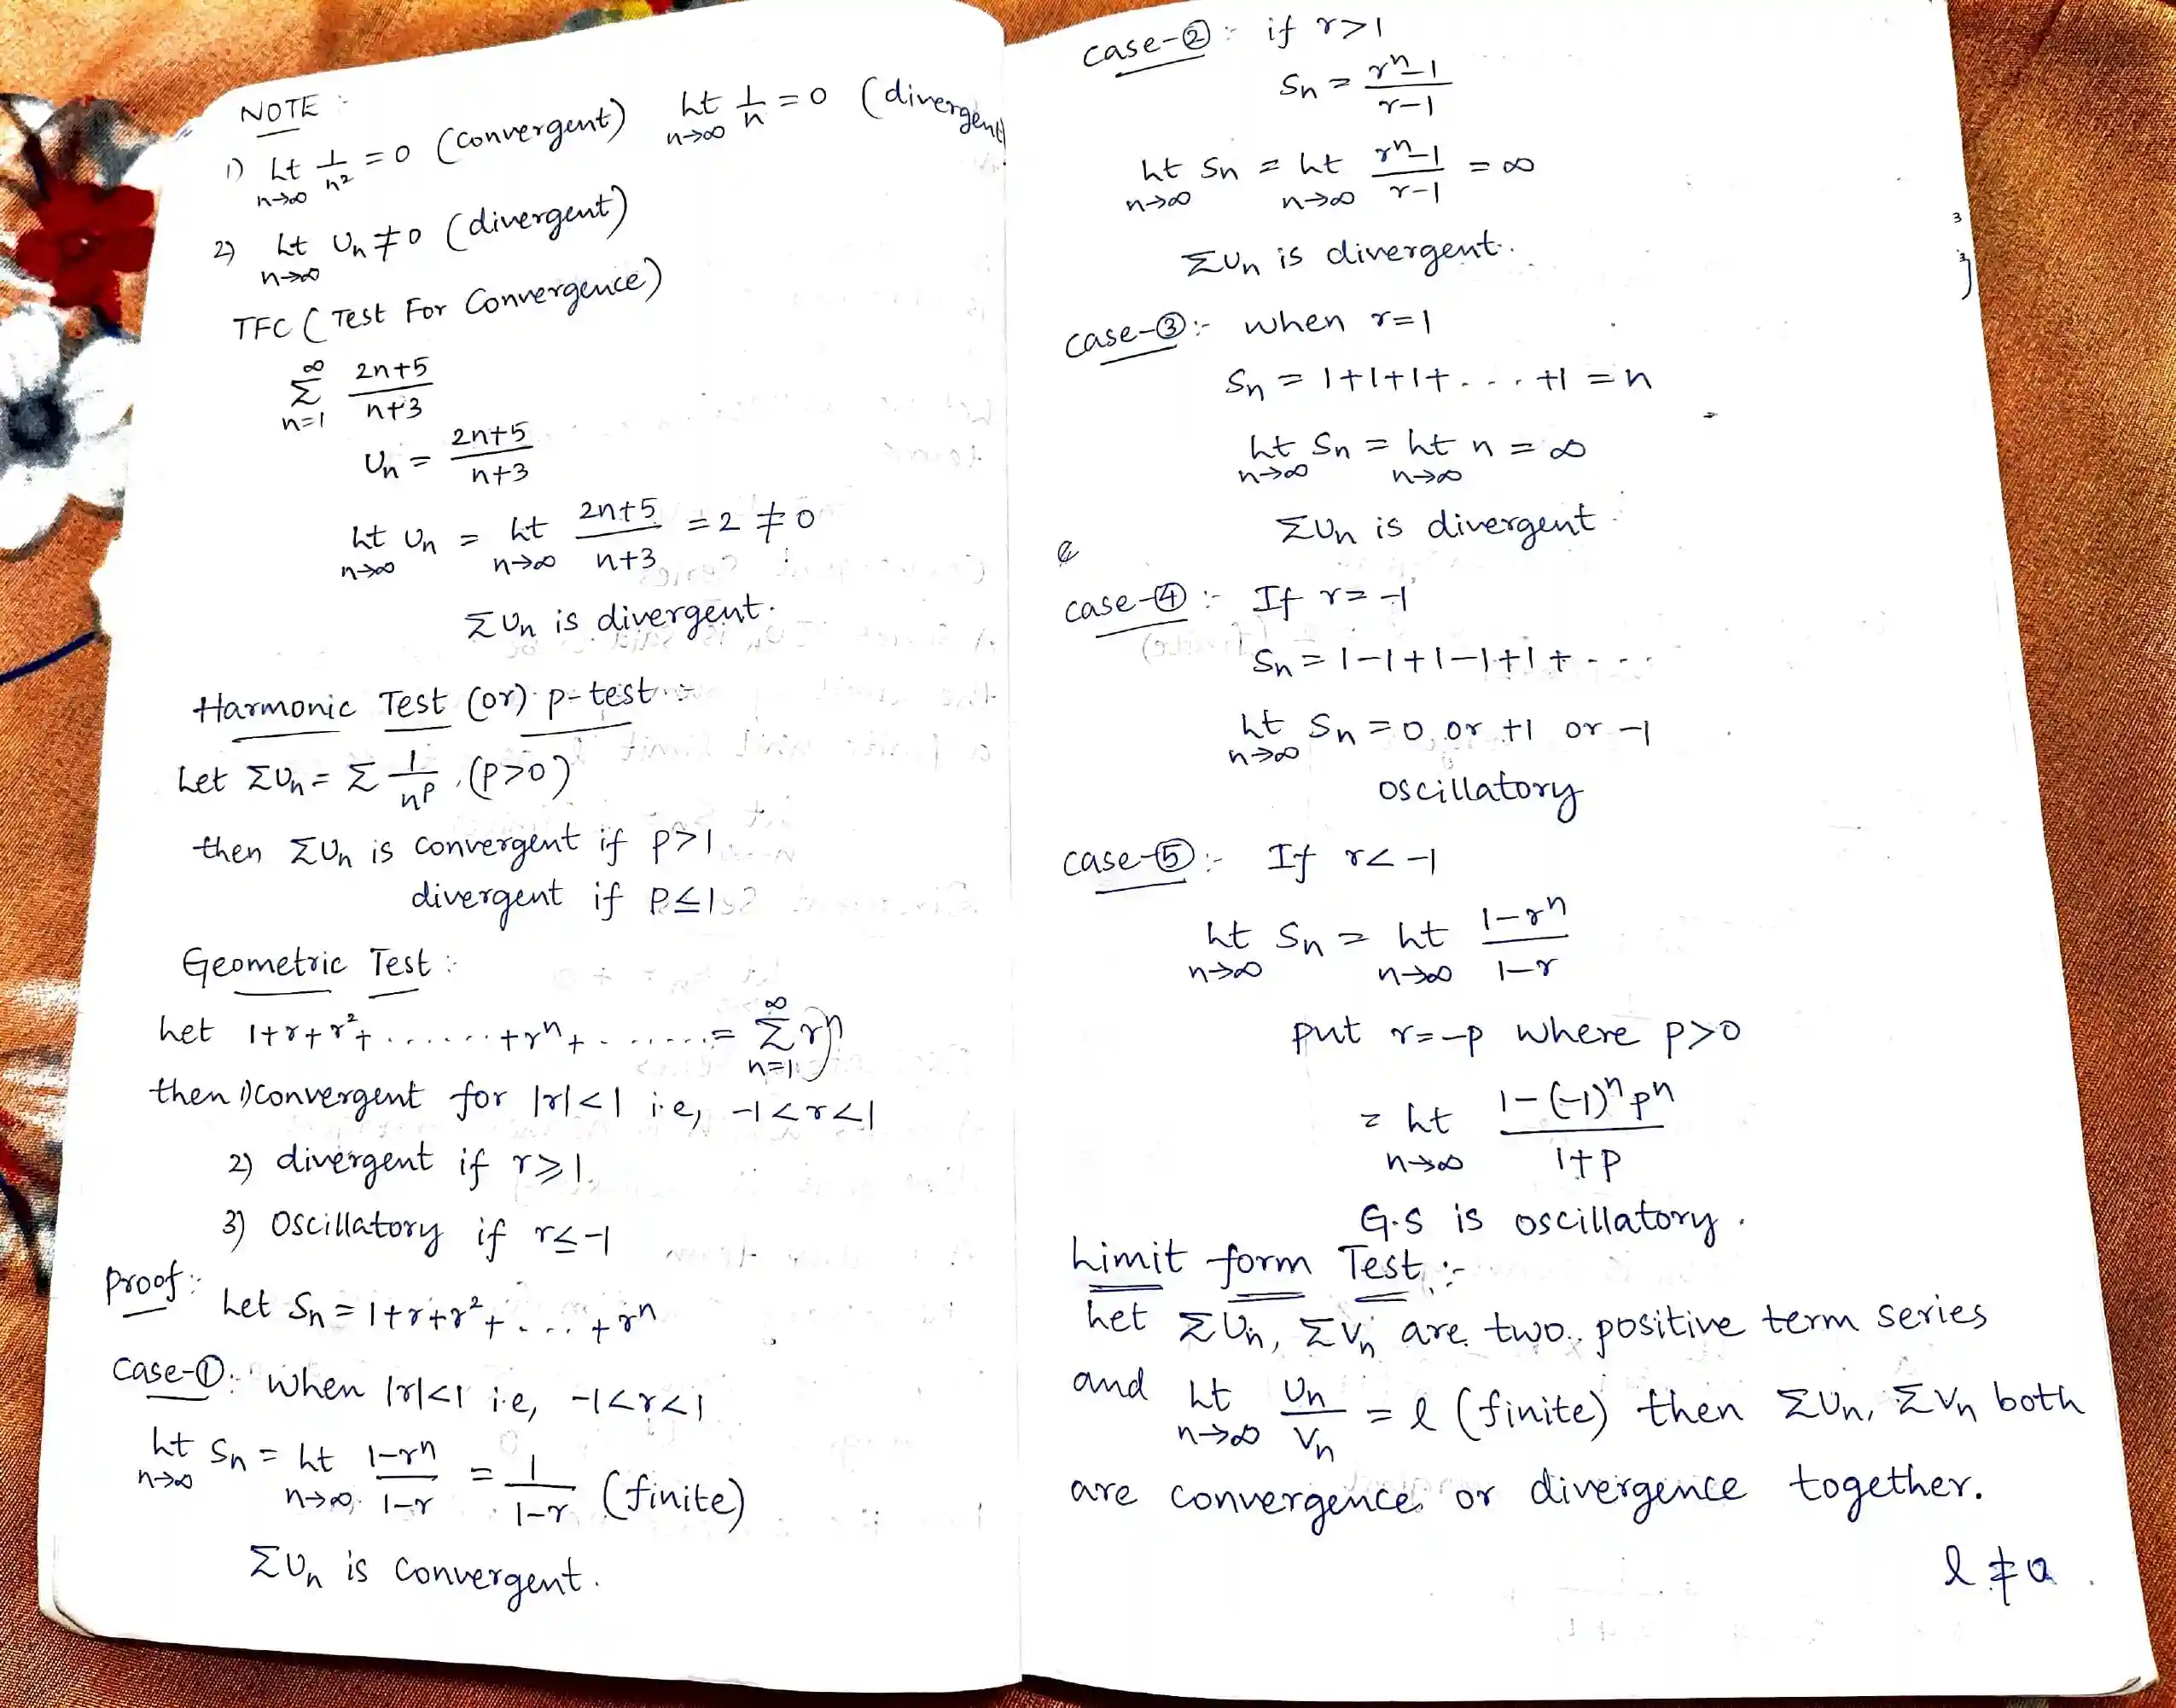 NOTE :-
1) Lt n→∞ 1/n² = 0 (Convergent) Lt n→∞ 1/n = 0 (divergent)
2) Lt n→∞ Un ≠ 0 (divergent)
TFC (Test For Convergence)
∞ Σ n=1 2n+5/n+3
Un = 2n+5/n+3
Lt n→∞ Un = Lt n→∞ 2n+5/n+3 = 2 ≠ 0
ΣUn is divergent.
Harmonic Test (or) p-test :-
Let ΣUn = Σ 1/n^p (p>0)
then ΣUn is convergent if p>1
divergent if p≤1
Geometric Test :-
Let 1+r+r²+.......+r^n+.......= ∞ Σ n=1 r^n
then 1) Convergent for |r|<1 i.e, -1<r<1
2) divergent if r≥1.
3) Oscillatory if r≤-1
Proof:- Let Sn = 1+r+r²+....+r^n
Case-①:- When |r|<1 i.e, -1<r<1
Lt n→∞ Sn = Lt n→∞ 1-r^n/1-r = 1/1-r (finite)
ΣUn is Convergent.
case-② :- if r>1
Sn = r^n-1/r-1
Lt n→∞ Sn = Lt n→∞ r^n-1/r-1 = ∞
ΣUn is divergent.
case-③:- when r=1
Sn = 1+1+1+....+1 = n
Lt n→∞ Sn = Lt n→∞ n = ∞
ΣUn is divergent
case-④ :- If r=-1
Sn = 1-1+1-1+1+....
Lt n→∞ Sn = 0 or +1 or -1
oscillatory
case-⑤ :- If r<-1
Lt n→∞ Sn = Lt n→∞ 1-r^n/1-r
put r=-p where p>0
= Lt n→∞ 1-(-1)^n p^n/1+p
G.S is oscillatory.
Limit form Test :-
Let ΣUn, ΣVn are two positive term series
and Lt n→∞ Un/Vn = l (finite) then ΣUn, ΣVn both
are convergence or divergence together.
l ≠ 0.